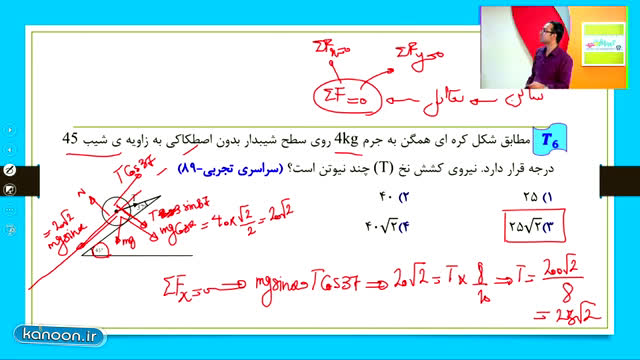 ΣFx=0 ΣFy=0
ΣF=0 ← تعادل ← ساکن
T6 مطابق شکل کره ای همگن به جرم 4kg روی سطح شیبدار بدون اصطکاکی به زاویه ی شیب 45
درجه قرار دارد. نیروی کشش نخ (T) چند نیوتن است؟ (سراسری تجربی-۸۹)
۱) ۲۵ ۲) ۴۰
۳) ۲۵√۲ ۴) ۴۰√۲
TCos37
N
mg
mgsinα = 20√2
mgcosα = 40×√2/2 = 20√2
ΣFx=0 → mgsinα=TCos37 → 20√2 = T×8/10 → T= 200√2/8
= 25√2
kanoon.ir